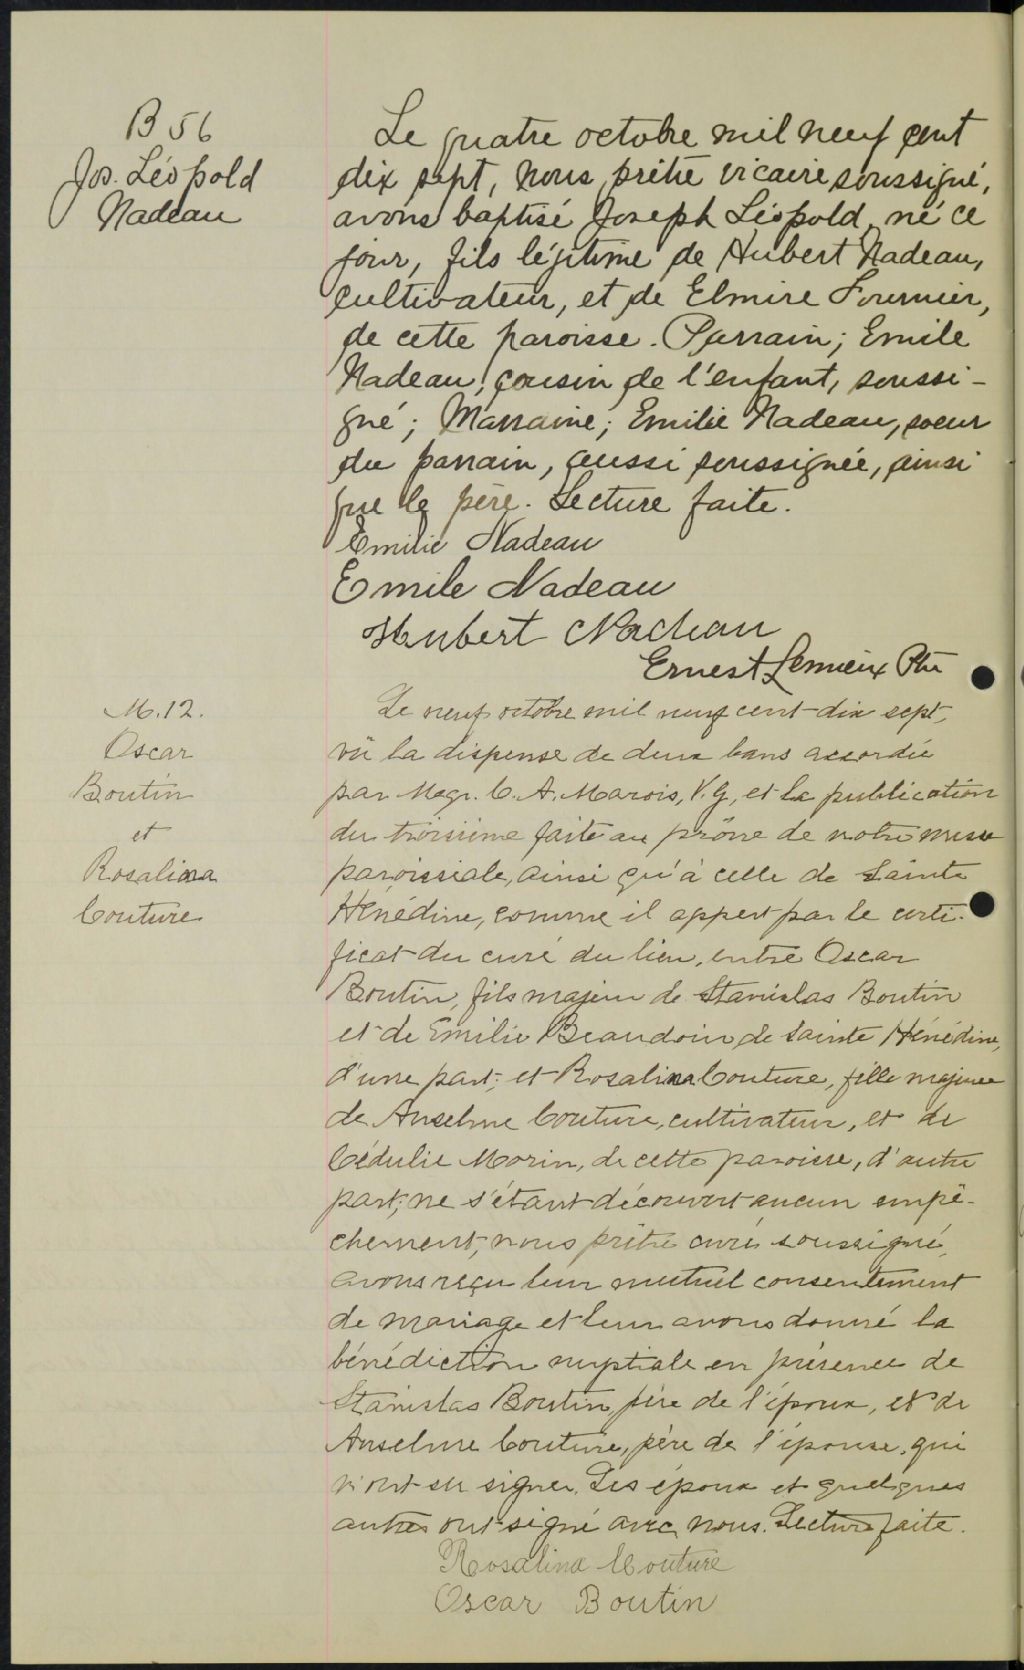 B 56
Jos. Léopold
Nadeau
Le quatre octobre mil neuf cent
dix sept, nous, prêtre vicaire soussigné,
avons baptisé Joseph Léopold, né ce
jour, fils légitime de Hubert Nadeau,
cultivateur, et de Elmire Fournier,
de cette paroisse. Parrain; Emile
Nadeau, cousin de l'enfant, soussi-
gné; Marraine; Emilie Nadeau, soeur
du parrain, aussi soussignée, ainsi
que le père. Lecture faite.
Emilie Nadeau
Emile Nadeau
Hubert Nadeau
Ernest Lemieux Ptre
M. 12.
Oscar
Boutin
et
Rosalina
Couture
Le neuf octobre mil neuf cent dix sept,
vû la dispense de deux bans accordée
par Mgr. C. A. Marois, V.G, et la publication
du troisième faite au prône de notre messe
paroissiale, ainsi qu'à celle de Sainte
Hénédine, comme il appert par le certi-
ficat du curé du lieu, entre Oscar
Boutin, fils majeur de Stanislas Boutin
et de Emilie Beaudoin de Sainte Hénédine,
d'une part; et Rosalina Couture, fille majeure
de Anselme Couture, cultivateur, et de
Cédulie Morin, de cette paroisse, d'autre
part; ne s'étant découvert aucun empê-
chement, nous prêtre curé soussigné,
avons reçu leur mutuel consentement
de mariage et leur avons donné la
bénédiction nuptiale en présence de
Stanislas Boutin, père de l'époux, et de
Anselme Couture, père de l'épouse, qui
n'ont su signer. Les époux et quelques
autres ont signé avec nous. Lecture faite.
Rosalina Couture
Oscar Boutin